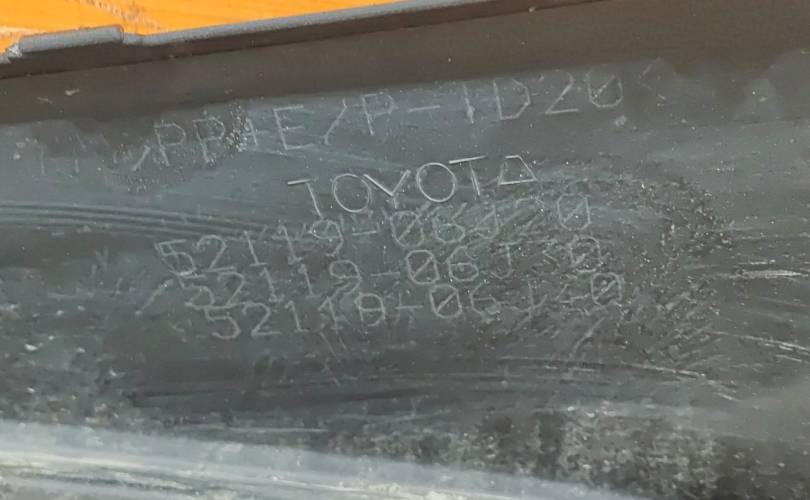 PP+E/P-TD20
TOYOTA
52119-06J20
52119-06J
52119-06J